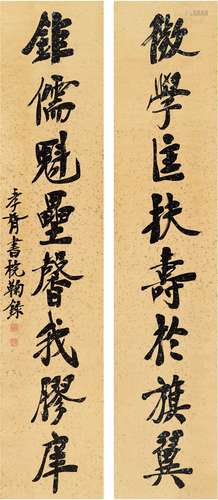 微學匡扶壽於旗翼
鉅儒魁壘馨我膠庠
季膺書梡鞠錄